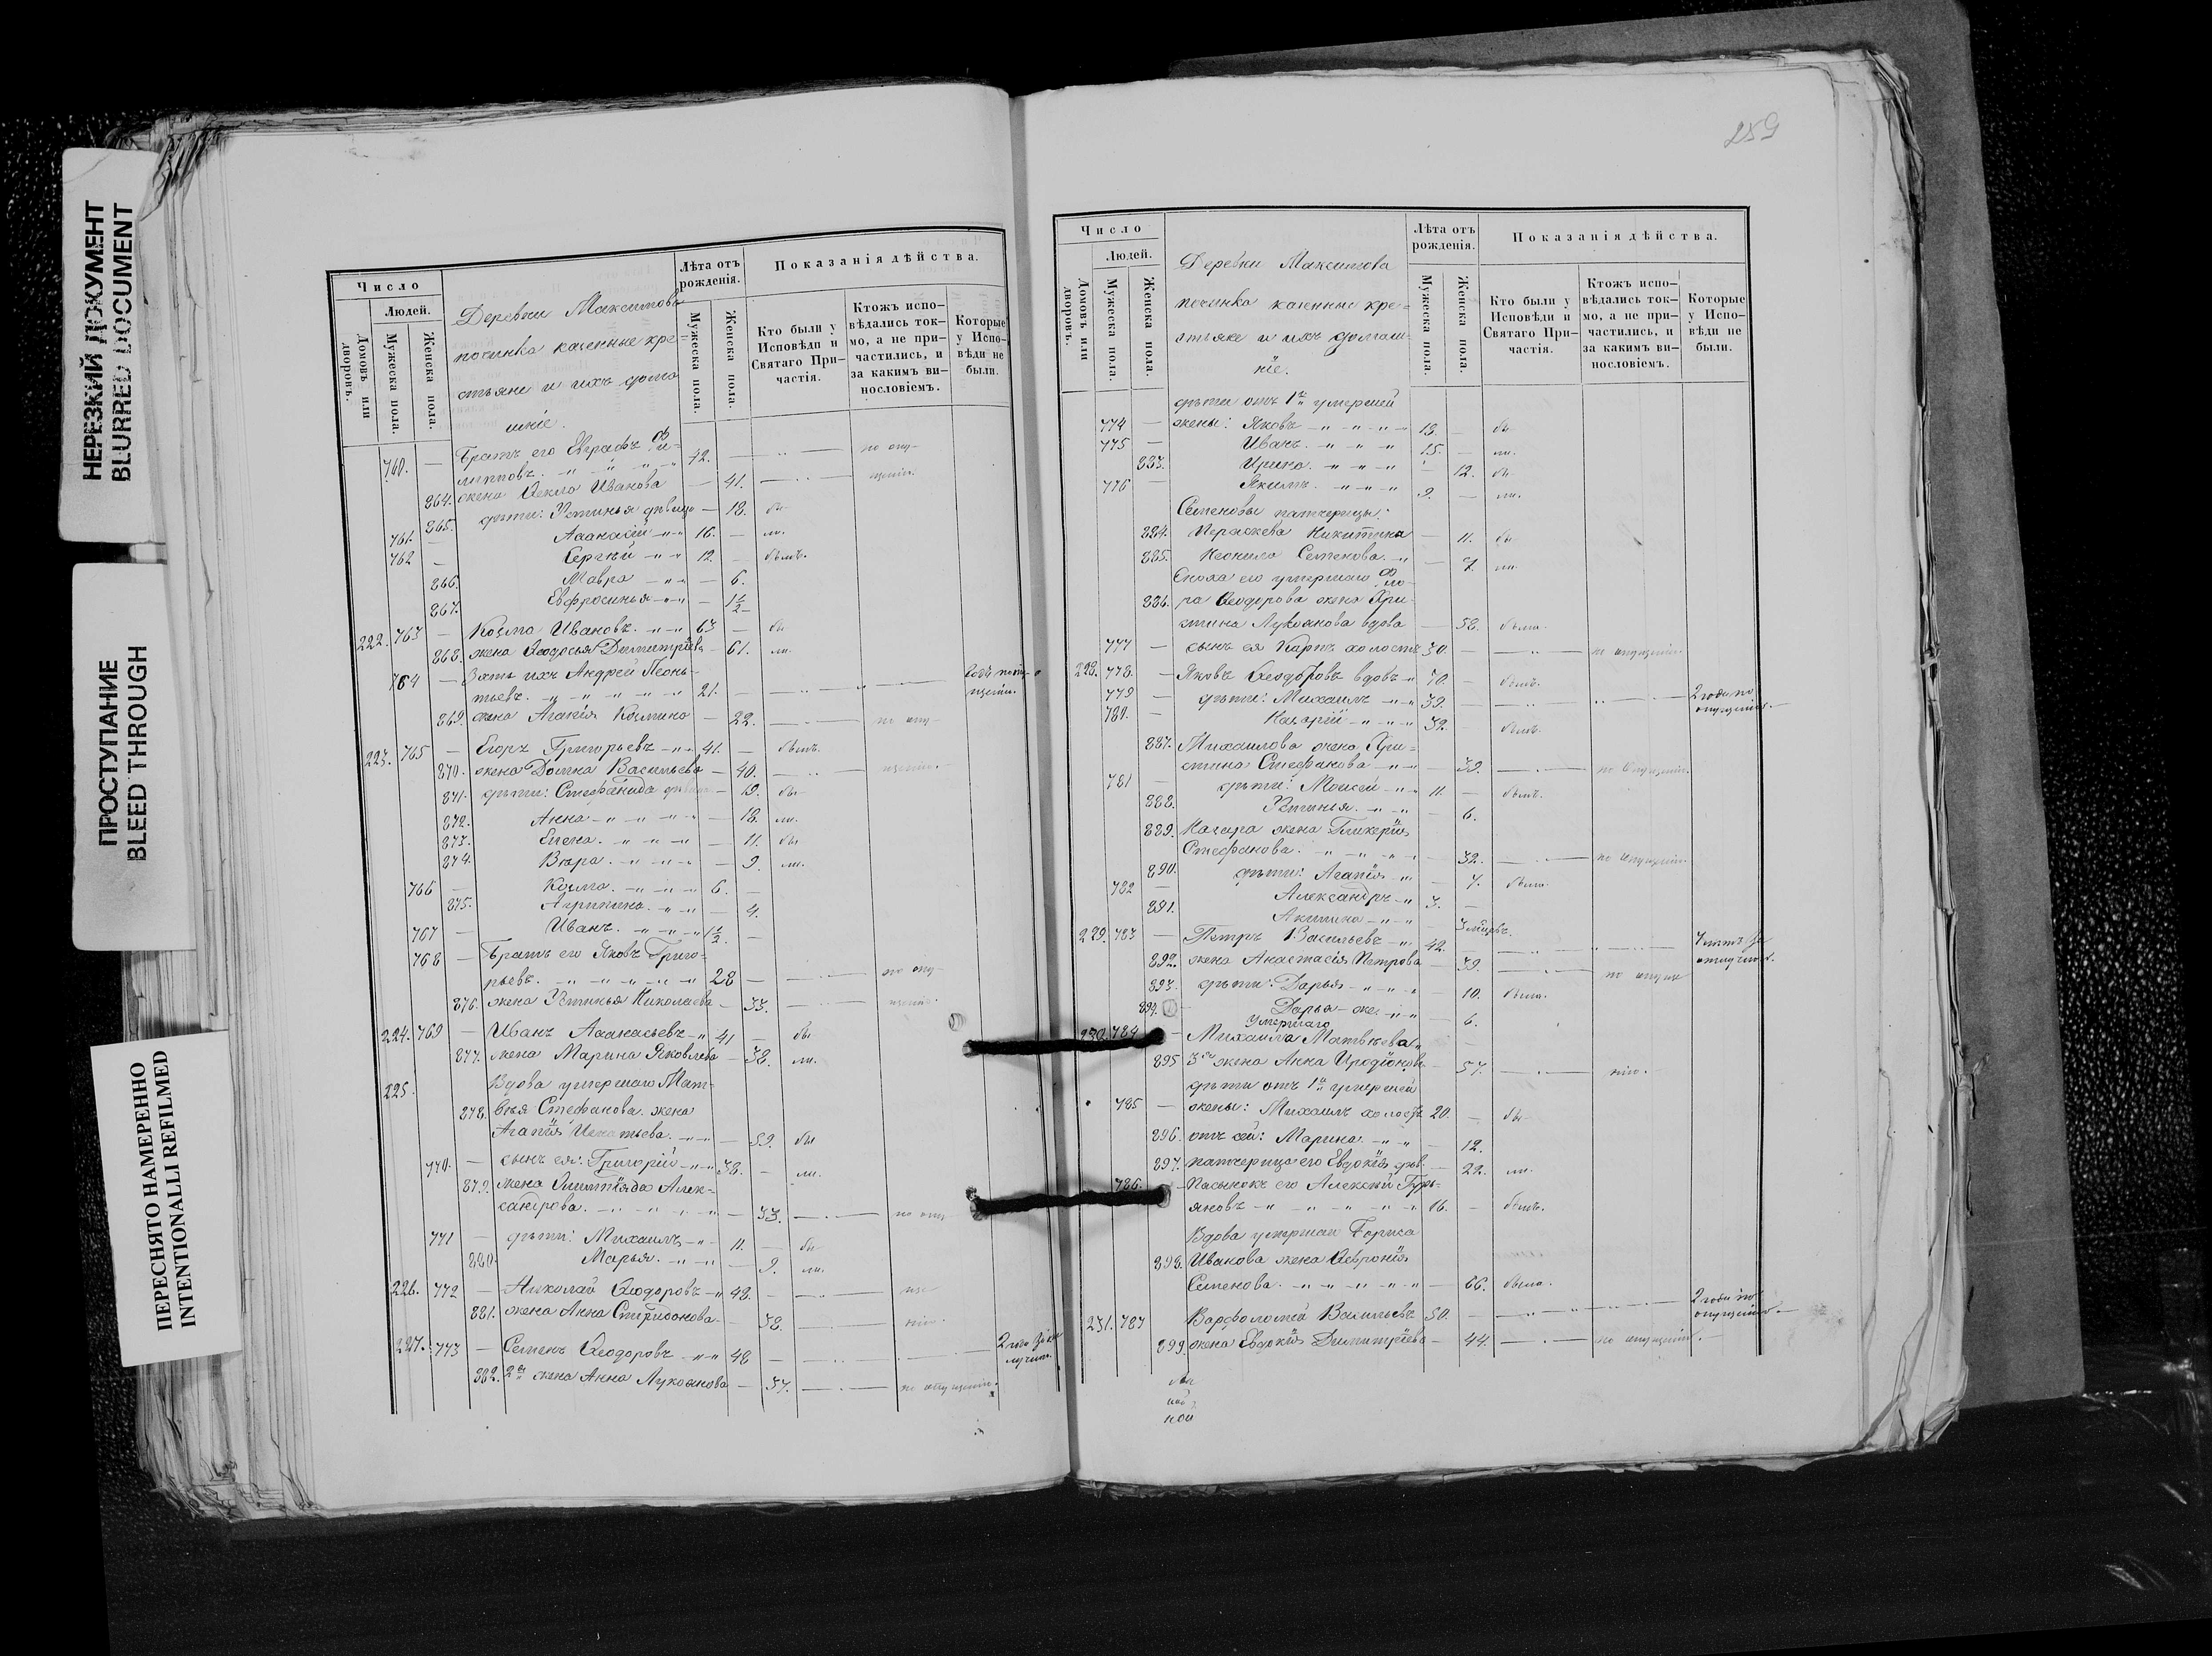 НЕРЕЗКИЙ ДОКУМЕНТ
BLURRED DOCUMENT
ПРОСТУПАНИЕ
BLEED THROUGH
ПЕРЕСНЯТО НАМЕРЕННО
INTENTIONALLI REFILMED
Число
Людей.
Домовъ или дворовъ.
Мужеска пола.
Женска пола.
Деревни Максимова
починка казенные кре=
стьяне и ихъ дома
шніе.
Лѣта отъ рожденія.
Мужеска пола.
Женска пола.
Показанія дѣйства.
Кто были у Исповѣди и Святаго При-частія.
Ктожъ испо-вѣдались ток-мо, а не при-частились, и за какимъ ви-нословіемъ.
Которые у Испо-вѣди не были.
760. — Братъ его Евграфъ Фи-
липповъ. 42. — по опу-
864. жена Ѳекла Иванова — 41. щенію.
865. дѣти: Устинья дѣвица — 18. бы
761. — Аѳанасій 16. — ли.
762 — Сергѣй 12. — былъ.
866. Мавра — 6.
867. Евфросинья — 1 1/2
222. 763 — Козма Ивановъ. 63 — бы
868. жена Ѳеодосья Димитріева — 61. ли.
764 — Зять ихъ Андрей Леонь-
тьевъ. 21. —
869 жена Агапія Козмина — 22. по опу-
223. 765 — Егоръ Григорьевъ 41. — былъ.
870. жена Домна Васильева — 40. щенію.
871. дѣти: Стефанида — 19. бы
872. Анна — 18. ли.
873. Елена. — 11. бы
874. Вѣра. — 9. ли.
766 — Козма. 6. —
875. Агрипина. — 4.
767 — Иванъ. 1 1/2 —
768 — Братъ его Яковъ Григо=
рьевъ. 28 — по опу-
876. жена Устинья Николаева — 33. щенію.
224. 769 — Иванъ Аѳанасьевъ 41 — бы
877. жена Марина Яковлева — 38. ли.
225. Вдова умершаго Мат=
878. вѣя Стефанова жена
Агапія Игнатьева. — 59. бы
770. — сынъ ея: Григорій 38. — ли.
879. жена Алек=
сандрова. — 33. по опу
771 — дѣти: Михаилъ 11. — бы
880. Марья. — 9. ли.
226. 772 — Николай Ѳеодоровъ 48. — ще
881. жена Анна Спиридонова — 38. нію.
227. 773 — Семенъ Ѳеодоровъ 48 —
882. 2я жена Анна Лукоянова — 37. по опущенію.
259
Число
Людей.
Домовъ или дворовъ.
Мужеска пола.
Женска пола.
Деревни Максимова
починка казенные кре=
стьяне и ихъ домаш
ніе.
Лѣта отъ рожденія.
Мужеска пола.
Женска пола.
Показанія дѣйства.
Кто были у Исповѣди и Святаго При-частія.
Ктожъ испо-вѣдались ток-мо, а не при-частились, и за какимъ ви-нословіемъ.
Которые у Испо-вѣди не были.
дѣти отъ 1й умершей
774 — жены: Яковъ 18. — бы
775 — Иванъ. 15. — ли.
883. Ирина. — 12. бы
776 — Якимъ. 9. — ли.
Семеновы патчерицы:
884. Параскева Никитина — 11. бы
885. Неонила Семенова. — 7. ли.
Сноха его умершаго Фло-
886. ра Ѳеодорова жена Хри-
стина Лукоянова вдова — 58. была.
777 — сынъ ея Карпъ холостъ 30. — по опущенію.
228. 778. — Яковъ Ѳеодоровъ вдовъ 70. — былъ.
779 — дѣти: Михаилъ 39. — 2 года по опущенію.
780. — Назарій 32. былъ.
887. Михаилова жена Хри=
стина Стефанова — 39. по опущенію.
781 — дѣти: Моисей 11. — былъ.
888. Устинья. — 6.
889. Назара жена Гликерія
Стефанова. — 32. по опущенію.
890. дѣти: Агапія — 7. была.
782 — Александръ 3. —
891. Акилина —
229. 783 — Петръ Васильевъ 42.
892. жена Анастасія Петрова 39. по опуще
893. дѣти: Дарья — 10. была.
894. Дарья — 6.
умершаго
230. 784 — Михаила Матвѣева
895 3я жена Анна Иродіонова — 57. нію.
дѣти отъ 1й умершей
785 — жены: Михаилъ холостъ 20. — бы
896. отъ сей: Марина — 12.
897. патчерица его Евдокія дѣв. — 22. ли.
786 — Пасынокъ его Алексѣй Гурь-
яновъ 16. — былъ.
Вдова умершаго Бориса
898. Иванова жена Ѳевронія
Семенова. — 66. была.
231. 787 Варѳоломей Васильевъ 50. — 2 года по опущенію.
899. жена Евдокія Димитріева — 44. по опущенію.